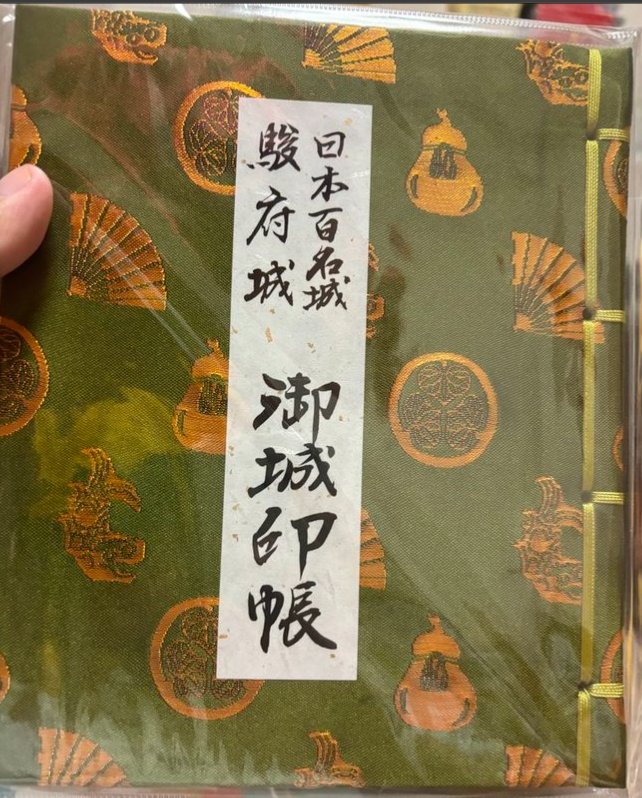 日本百名城
駿府城
御城印帳